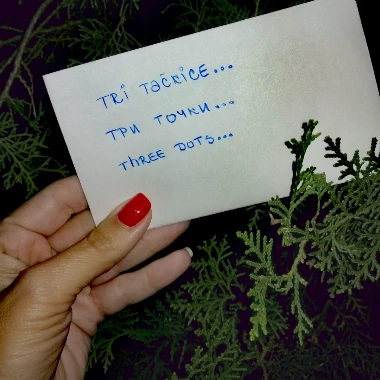 TRI TAČKICE...
ТРИ ТОЧКИ...
THREE DOTS...